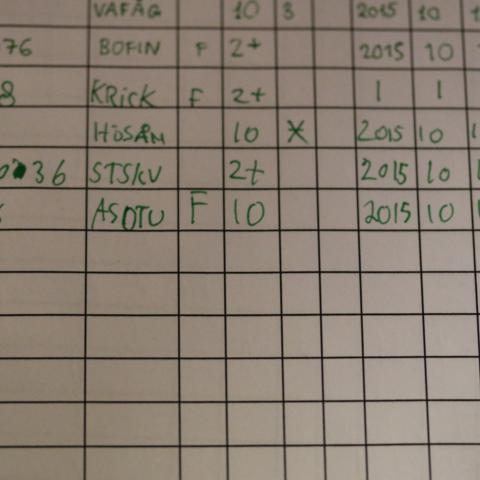 VAFÅG 10 3 2015 10
76 BOFIN F 2+ 2015 10
8 KRICK F 2+ 1 1
HUSÅN 10 X 2015 10
36 STSKV 2+ 2015 10
ASOTU F 10 2015 10